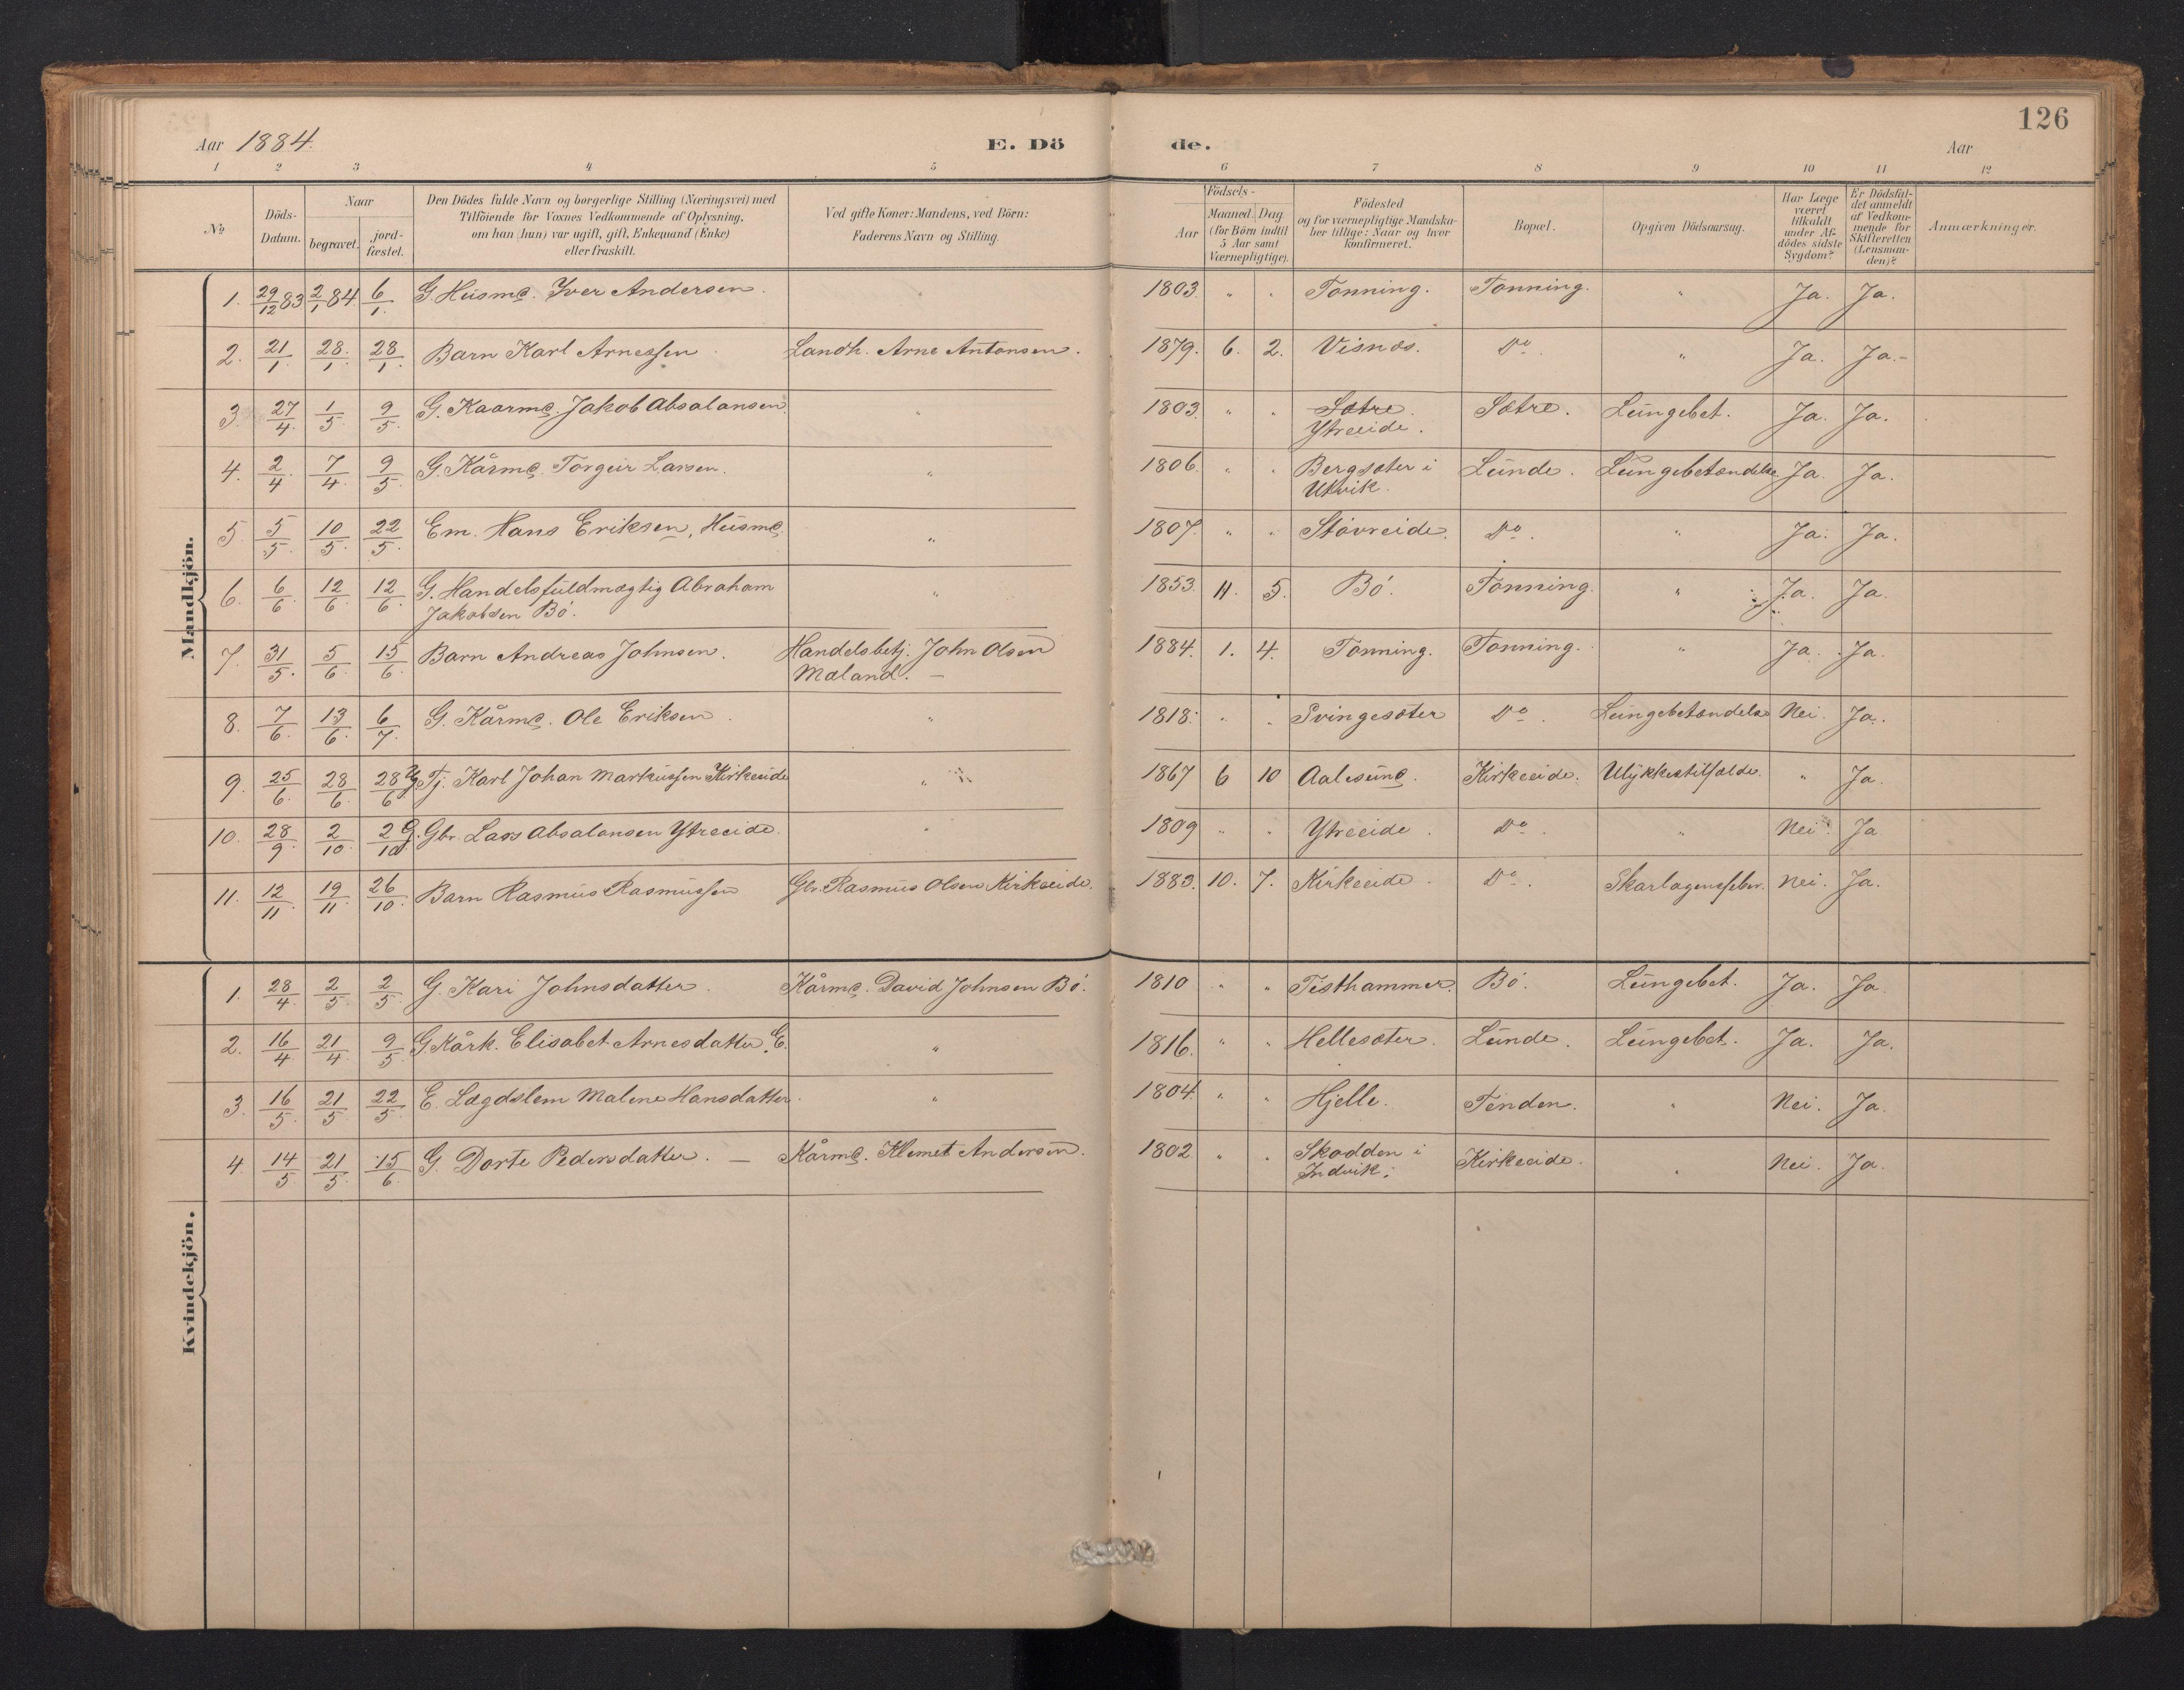 126
Aar 1884. E. Dö de. Aar
1 2 3 4 5 6 7 8 9 10 11 12
№
Döds-
Datum.
Naar
begravet.
jord-
fæstet.
Den Dödes fulde Navn og borgerlige Stilling (Næringsvei) med
Tilföiende for Voxnes Vedkommende af Oplysning,
om han (hun) var ugift, gift, Enkemand (Enke)
eller fraskilt.
Ved gifte Koner: Mandens, ved Börn:
Faderens Navn og Stilling.
Födsels-
Aar
Maaned. Dag.
(for Börn indtil
5 Aar samt
Værnepligtige).
Födested
og for værnepligtige Mandska-
ber tillige: Naar og hvor
konfirmeret.
Bopæl.
Opgiven Dödsaarsag.
Har Læge
været
tilkaldt
under Af-
dödes sidste
Sygdom?
Er Dödsfal-
det anmeldt
af Vedkom-
mende for
Skifteretten
(Lensman-
den)?
Anmærkninger.
Mandkjön.
1. 29/12 83 2/1 84 6/1 G. Husmd. Iver Andersen. " 1803. " " Tonning. Tonning. " Ja. Ja.
2. 21/1 28/1 28/1 Barn Karl Arnessen Landh. Arne Antonsen. 1879. 6. 2. Visnæs. Do. " Ja. Ja.-
3. 27/4 1/5 9/5 G. Kaarmd. Jakob Absalonsen. " 1803. " " Sætre. Sætre. Lungebet. Ja. Ja.
Ytreeide.
4. 2/4 7/4 9/5 G. Kårmd. Torgeir Larsen. " 1806. " " Bergsæter i Lunde. Lungebetændelse Ja. Ja.
Utvik.
5. 5/5 10/5 22/5 Em. Hans Eriksen, Husmd. " 1807. " " Stövreide. Do. " Ja. Ja.
6. 6/6 12/6 12/6 G. Handelsfuldmægtig Abraham " 1853. 11. 5. Bö. Tonning. " Ja. Ja.
Jakobsen Bö.
7. 31/5 5/6 15/6 Barn Andreas Johnsen. Handelsbetj. John Olsen 1884. 1. 4. Tonning. Tonning. " Ja. Ja.
Mæland. —
8. 7/6 13/6 6/7 G. Kårmd. Ole Eriksen. " 1818. " " Svingesæter Do. Lungebetændelse Nei. Ja.
9. 25/6 28/6 28/6 Ug. Tj. Karl Johan Markussen Kirkeeide " 1867 6 10 Aalesund. Kirkeeide. Ulykkestilfælde. " Ja.
10. 28/9 2/10 2/10 G. Gbr. Lars Absalonsen Ytreeide. " 1809 " " Ytreeide. Do. " Nei. Ja
11. 12/11 19/11 26/10 Barn Rasmus Rasmussen Gbr. Rasmus Olsen Kirkeeide. 1883. 10. 7. Kirkeeide. Do. Skarlagensfeber. Nei. Ja.
Kvindekjön.
1. 28/4 2/5 2/5 G. Kari Johnsdatter. Kårmd. David Johnsen Bö. 1810 " " Tisthammer. Bö. Lungebet. Ja. Ja
2. 16/4 21/4 9/5 G. Kårk. Elisabet Arnesdatter. E. " 1816. " " Hellesæter. Lunde. Lungebet. Ja. Ja.
3. 16/5 21/5 22/5 E. Lægdslem Malene Hansdatter. " 1804. " " Hjelle. Tenden. " Nei. Ja.
4. 14/5 21/5 15/6 G. Dorte Pedersdatter. — Kårmd. Klemet Andersen. 1802 " " Skodden i Kirkeeide. " Nei. Ja.
Indvik.